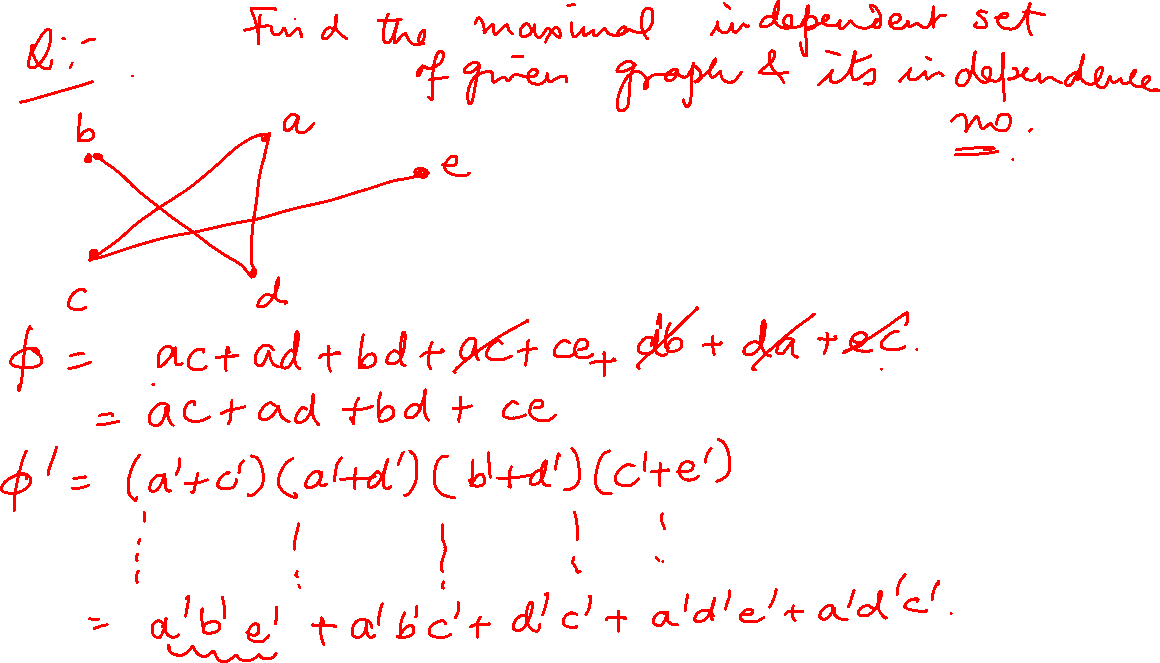 Q:- Find the maximal independent set
of given graph & its independence
no.
b
a
e
c
d
ϕ = ac + ad + bd + ac + ce + db + da + ec.
= ac + ad + bd + ce
ϕ' = (a'+c')(a'+d')(b'+d')(c'+e')
= a'b'e' + a'b'c' + d'c' + a'd'e' + a'd'c'.